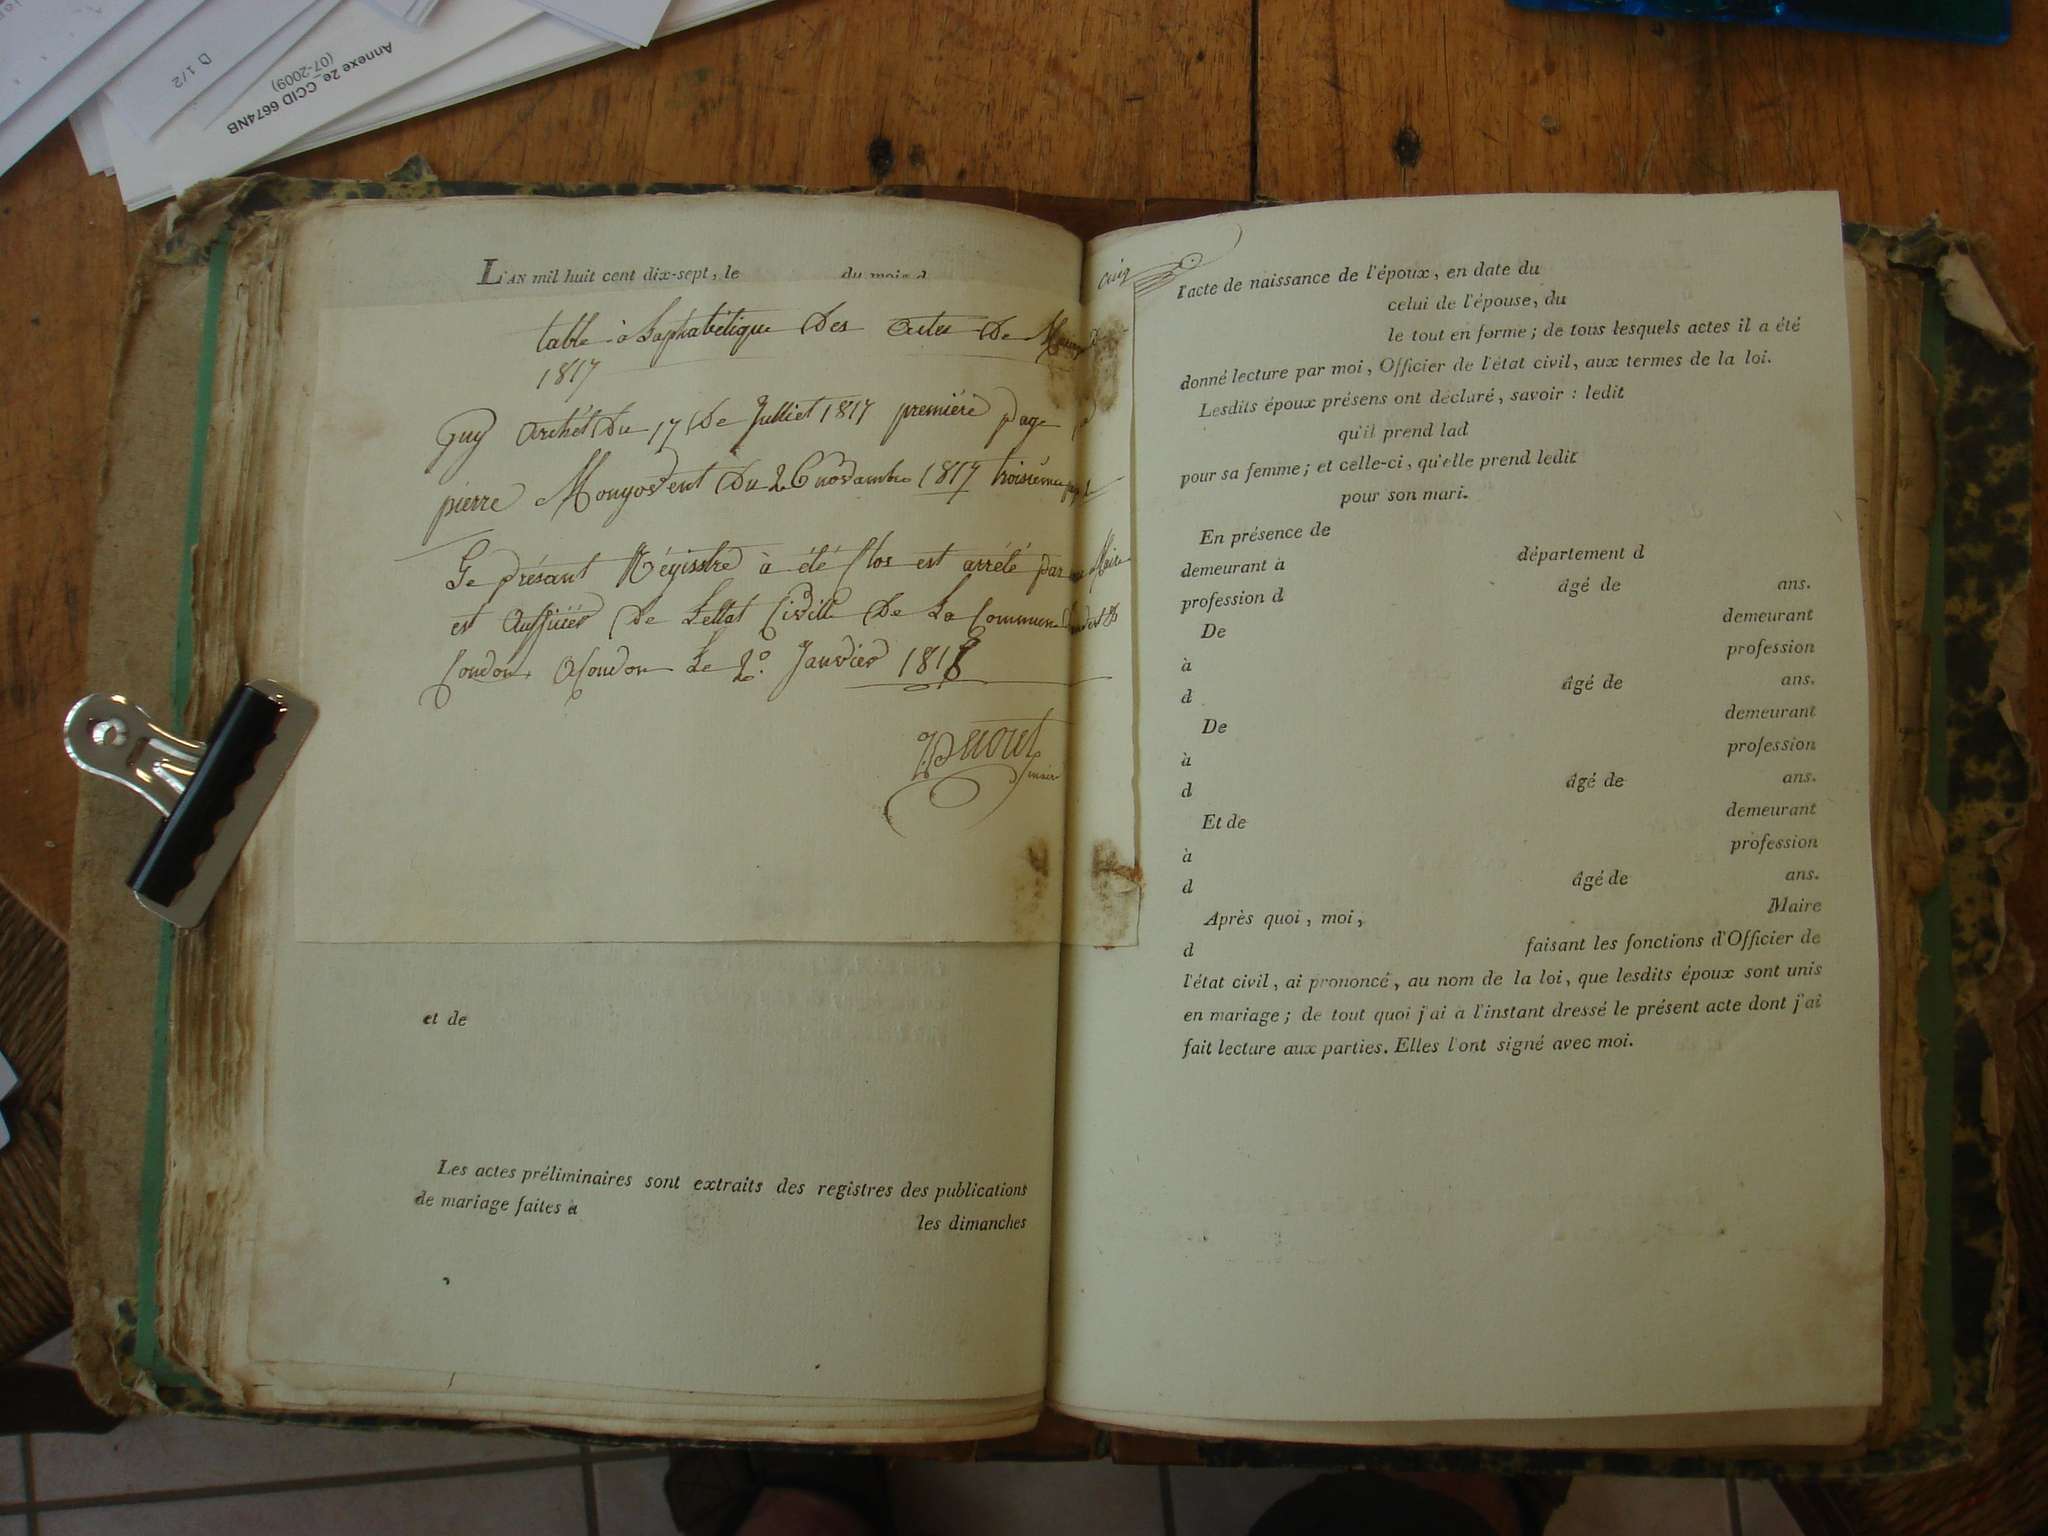 D 1/2
Annexe 2e_CCID 6674NB
(07-2009)
L'AN mil huit cent dix-sept, le du mois d
table à Laphabétique des actes De
1817
Guy Du 17 De Julliet 1817 première page
pierre Du 26 novambre 1817 troisième
Le présant Régistre à été Clos est arrété par Maire
est Auffiiér De Lettat Civille De La Commune
Coudon Le 2e. Janvier 1818
maire
et de
Les actes préliminaires sont extraits des registres des publications
de mariage faites à les dimanches
cinq
l'acte de naissance de l'époux, en date du
celui de l'épouse, du
le tout en forme; de tous lesquels actes il a été
donné lecture par moi, Officier de l'état civil, aux termes de la loi.
Lesdits époux présens ont déclaré, savoir : ledit
qu'il prend lad
pour sa femme; et celle-ci, qu'elle prend ledit
pour son mari.
En présence de
demeurant à département d
profession d âgé de ans.
De demeurant
à profession
d âgé de ans.
De demeurant
à profession
d âgé de ans.
Et de demeurant
à profession
d âgé de ans.
Après quoi, moi, Maire
d faisant les fonctions d'Officier de
l'état civil, ai prononcé, au nom de la loi, que lesdits époux sont unis
en mariage; de tout quoi j'ai à l'instant dressé le présent acte dont j'ai
fait lecture aux parties. Elles l'ont signé avec moi.